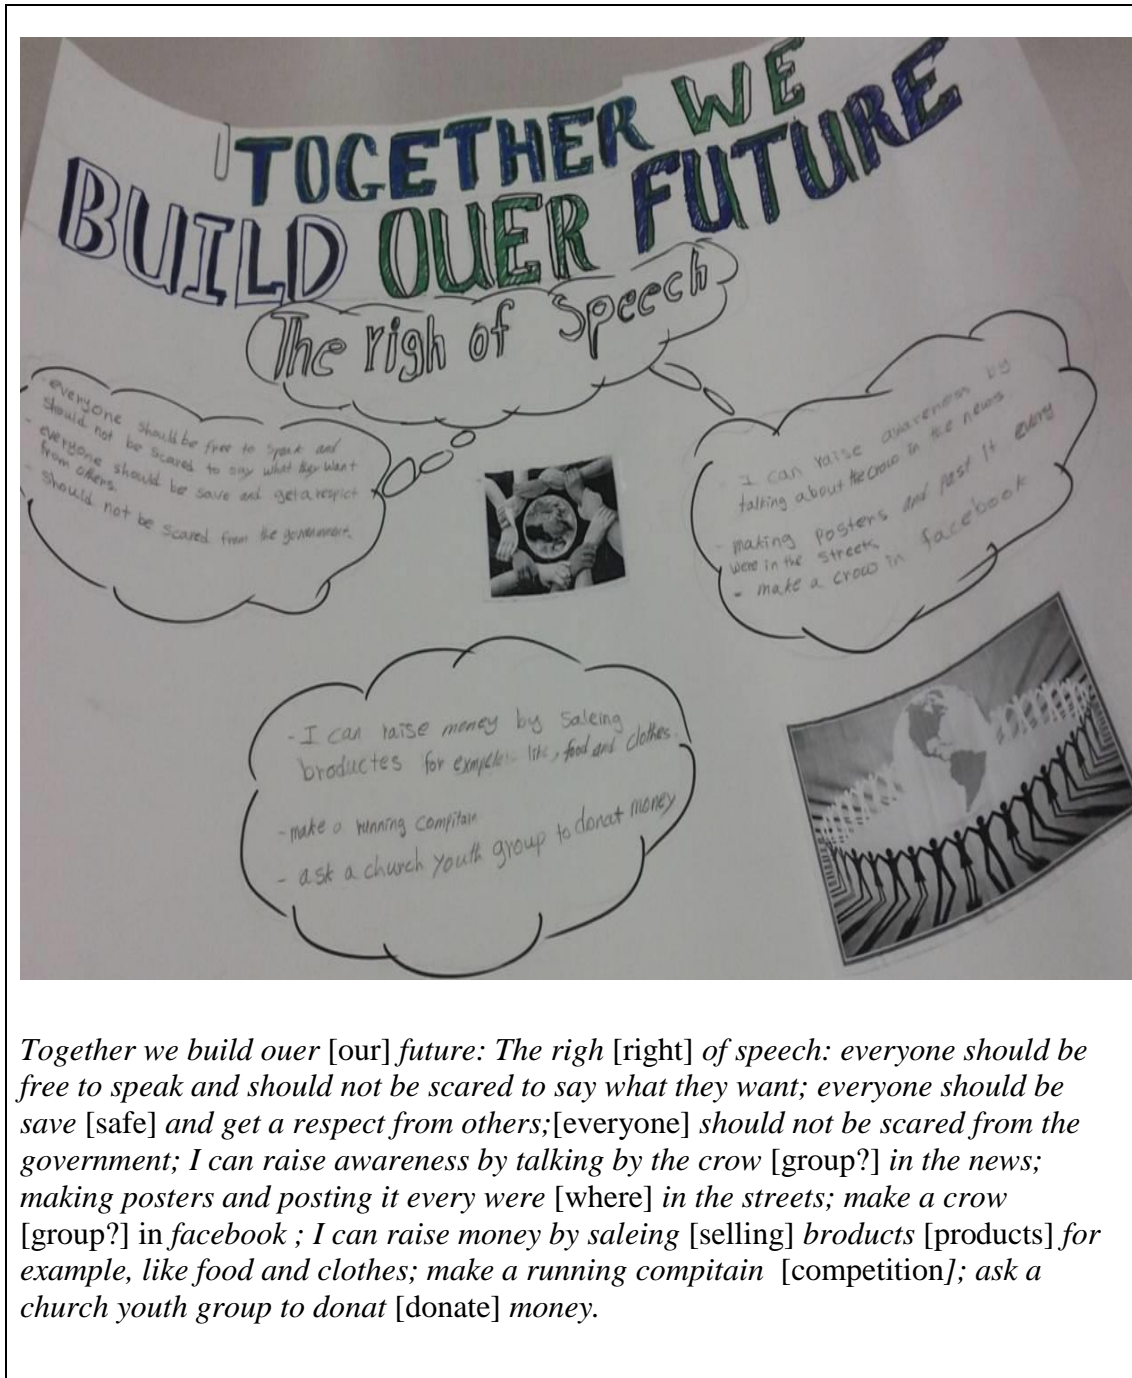 TOGETHER WE
BUILD OUER FUTURE
The righ of Speech
- everyone should be free to speak and
should not be scared to say what they want
- everyone should be save and get a respict
from others.
- should not be scared from the government.
- I can raise awareness by
talking about the crow in the news.
- making posters and past it every
were in the streets
- make a crow in facebook
- I can raise money by saleing
broductes for exmple:- like, food and clothes.
- make a running
- ask a church youth group to donat money
Together we build ouer [our] future: The righ [right] of speech: everyone should be
free to speak and should not be scared to say what they want; everyone should be
save [safe] and get a respect from others;[everyone] should not be scared from the
government; I can raise awareness by talking by the crow [group?] in the news;
making posters and posting it every were [where] in the streets; make a crow
[group?] in facebook ; I can raise money by saleing [selling] broducts [products] for
example, like food and clothes; make a running compitain [competition]; ask a
church youth group to donat [donate] money.